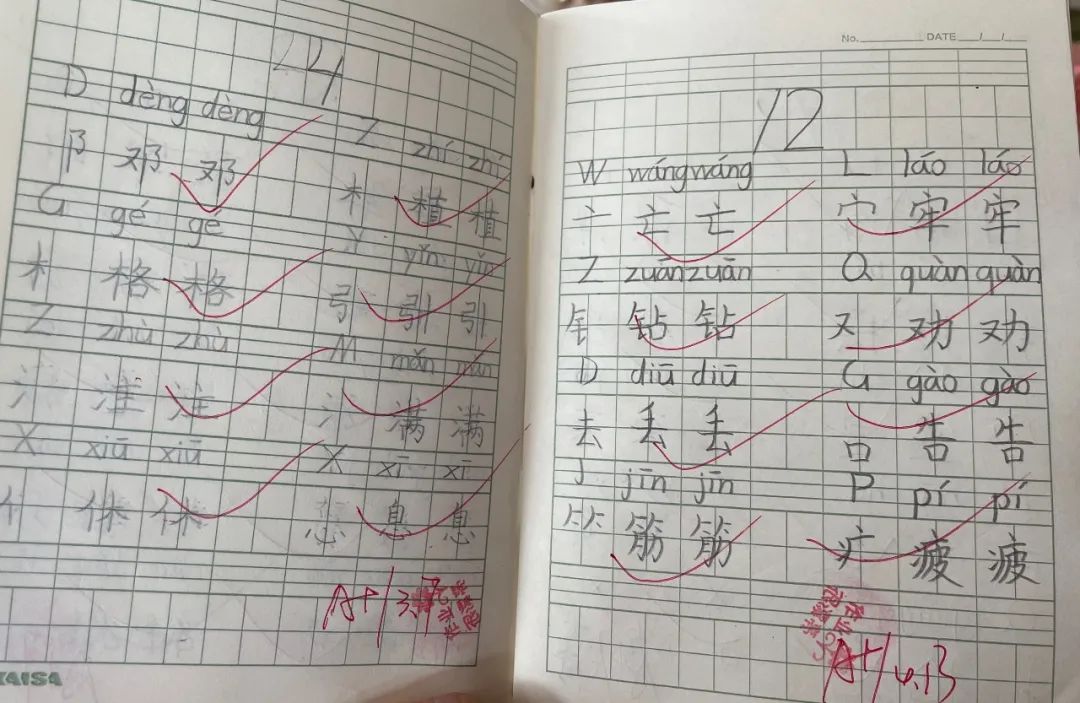 24
D dèng dèng
阝 邓 邓
Z zhí zhí
木 植 植
G gé gé
木 格 格
Y yǐn yǐn
弓 引 引
Z zhù zhù
氵 注 注
M mǎn mǎn
氵 满 满
X xiū xiū
亻 休 休
X xī xī
息 息
A+ 3.
KAISA
No. DATE / /
12
W wáng wáng
亠 亡 亡
L láo láo
宀 牢 牢
Z zuān zuān
钅 钻 钻
Q quàn quàn
又 劝 劝
D diū diū
去 丢 丢
G gào gào
口 告 告
J jīn jīn
⺮ 筋 筋
P pí pí
疒 疲 疲
A+ 4.13